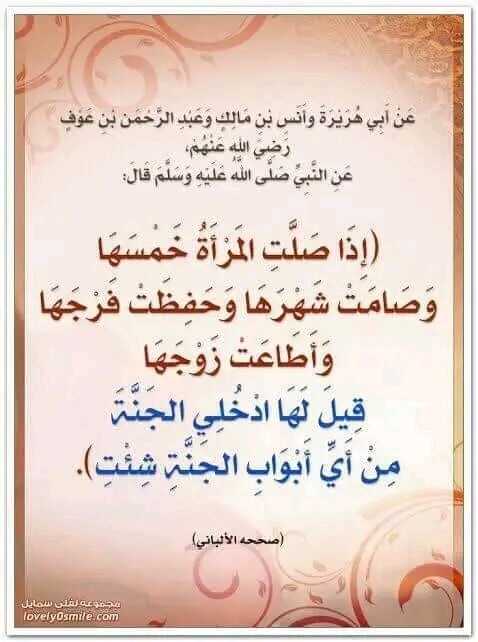 عَنْ أَبِي هُرَيْرَةَ وَأَنَسِ بْنِ مَالِكٍ وَعَبْدِ الرَّحْمَنِ بْنِ عَوْفٍ
رَضِيَ اللهُ عَنْهُمْ،
عَنِ النَّبِيِّ صَلَّى اللَّهُ عَلَيْهِ وَسَلَّمَ قَالَ:
(إِذَا صَلَّتِ المَرْأَةُ خَمْسَهَا
وَصَامَتْ شَهْرَهَا وَحَفِظَتْ فَرْجَهَا
وَأَطَاعَتْ زَوْجَهَا
قِيلَ لَهَا ادْخُلِي الجَنَّةَ
مِنْ أَيِّ أَبْوَابِ الجنَّةِ شِئْتِ).
(صححه الألباني)
مجموعة لفلي سمايل
lovely0smile.com